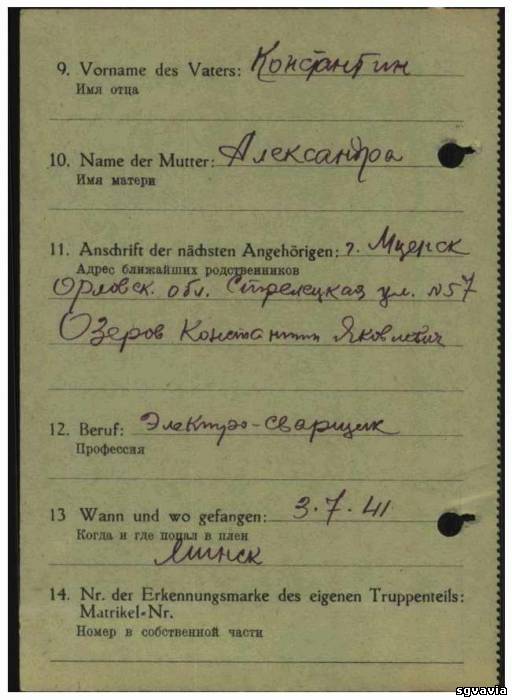 9. Vorname des Vaters: Константин
Имя отца
10. Name der Mutter: Александра
Имя матери
11. Anschrift der nächsten Angehörigen: г. Мценск
Адрес ближайших родственников
Орловск. обл. Стрелецкая ул. №57
Озеров Константин Яковлевич
12. Beruf: Электро-сварщик
Профессия
13 Wann und wo gefangen: 3.7.41
Когда и где попал в плен
Минск
14. Nr. der Erkennungsmarke des eigenen Truppenteils:
Matrikel-Nr.
Номер в собственной части
sgvavia